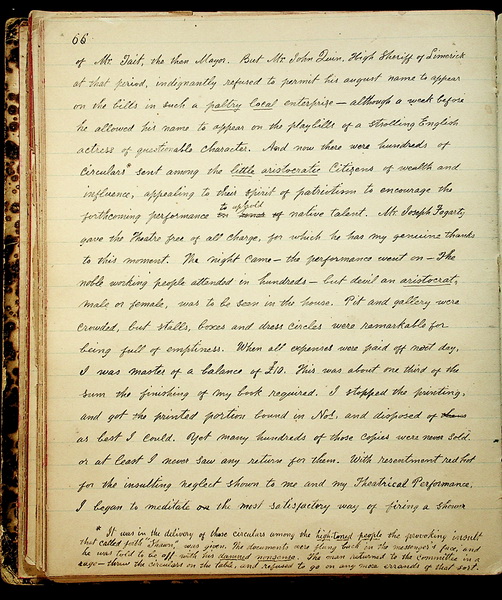 66
of Mr. Tait, the then Mayor. But Mr. John Quin, High Sheriff of Limerick
at that period, indignantly refused to permit his august name to appear
on the bills in such a paltry local enterprise — although a week before
he allowed his name to appear on the playbills of a Strolling English
actress of questionable character. And now there were hundreds of
Circulars* sent among the little aristocratic Citizens of wealth and
influence, appealing to their Spirit of patriotism to encourage the
to uphold
forthcoming performance native talent. Mr. Joseph Fogarty
gave the Theatre free of all charge, for which he has my genuine thanks
to this moment. The night came — the performance went on — The
noble working people attended in hundreds — but devil an aristocrat,
male or female, was to be seen in the house. Pit and gallery were
crowded, but stalls, boxes and dress circles were remarkable for
being full of emptiness. When all expenses were paid off next day,
I was master of a balance of £10. This was about one third of the
sum the finishing of my book required. I stopped the printing,
and got the printed portion bound in Nos., and disposed of them
as best I could. Yet many hundreds of those copies were never sold.
or at least I never saw any return for them. With resentment red hot
for the insulting neglect shown to me and my Theatrical Performance,
I began to meditate on the most satisfactory way of firing a Shower
* It was in the delivery of those circulars among the high-toned people the provoking insult
that called forth "Shawn" was given. The documents were flung back in the messenger's face, and
he was told to be off with his damned nonsense. The man returned to the Committee in a
rage — threw the circulars on the table, and refused to go on any more errands of that sort.